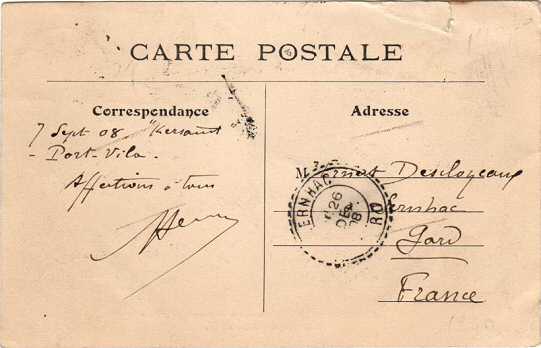 CARTE POSTALE
Correspondance
7 Sept 08 "Kersaint
- Port-Vila.
Affections à tous
Adresse
M. Ernest
Sernhac
Gard
France
ERNHAC
26
08